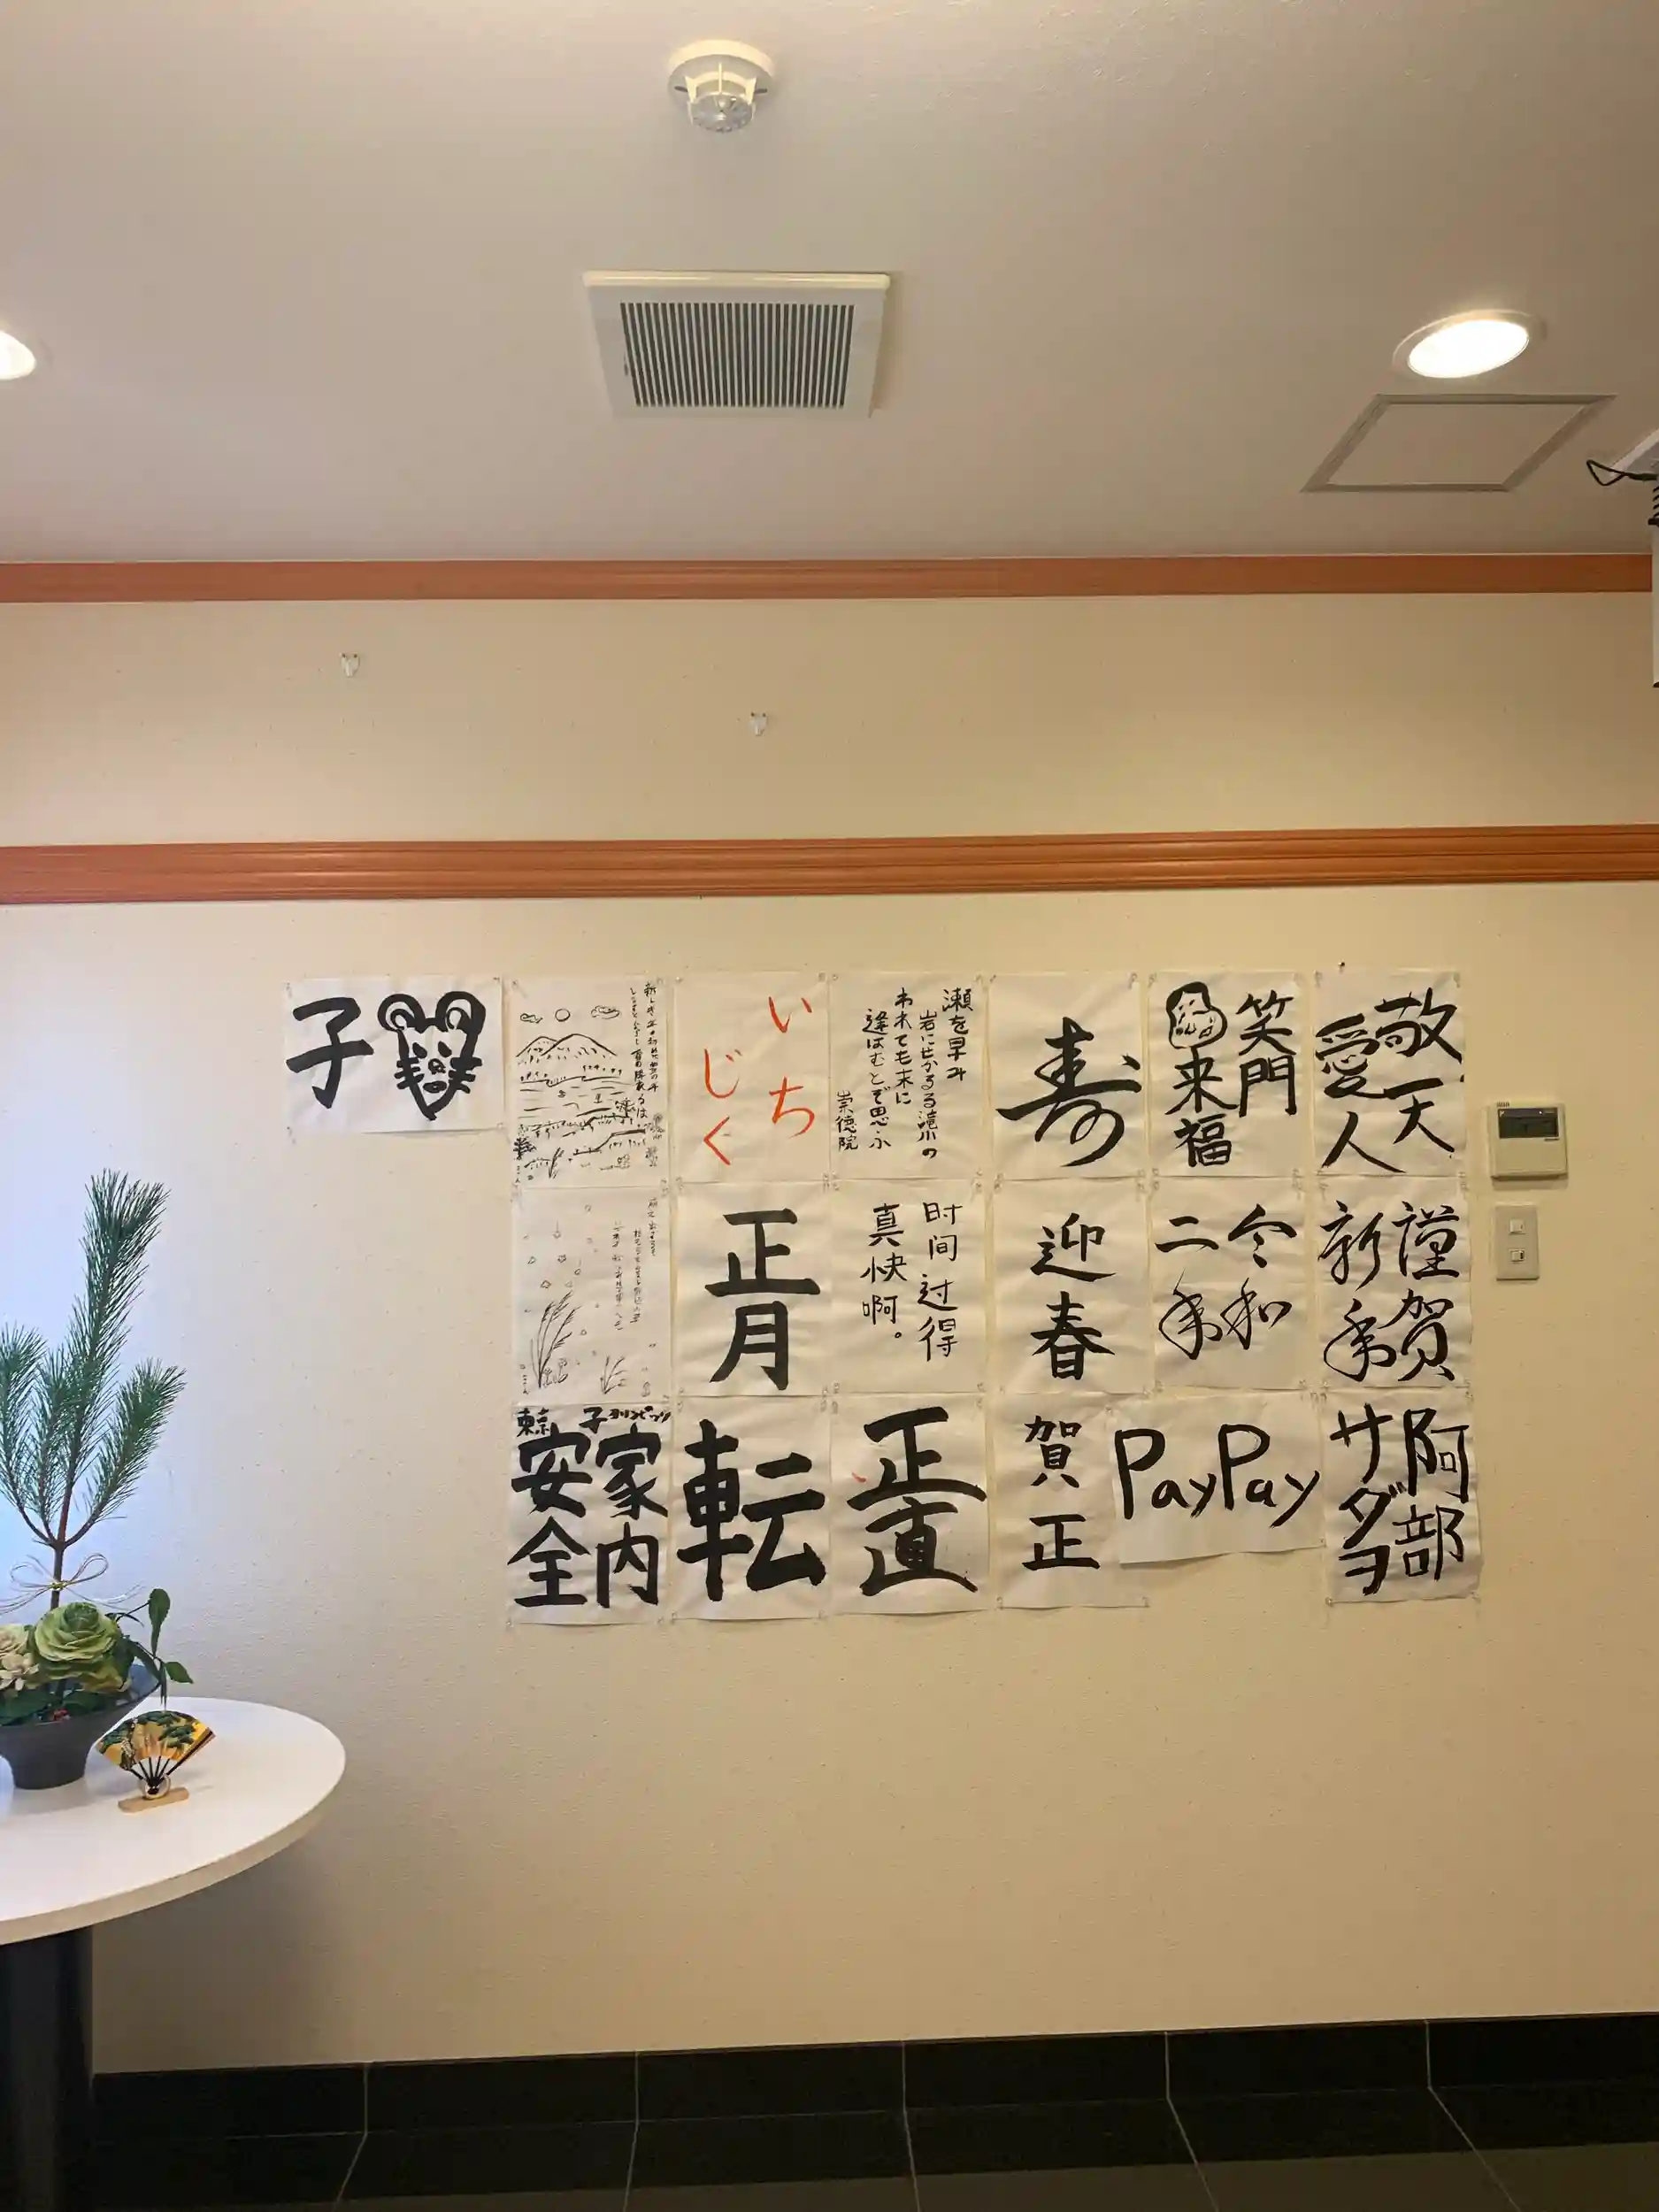 敬天
愛人
笑門
来福
寿
瀬を早み
岩にせかるる滝川の
われても末に
逢はむとぞ思ふ
崇徳院
いち
じく
子
謹賀
新年
令和
二年
迎春
时间过得
真快啊。
正月
阿部
サダヲ
PayPay
賀正
正直
転
東京 子 オリンピック
家内
安全